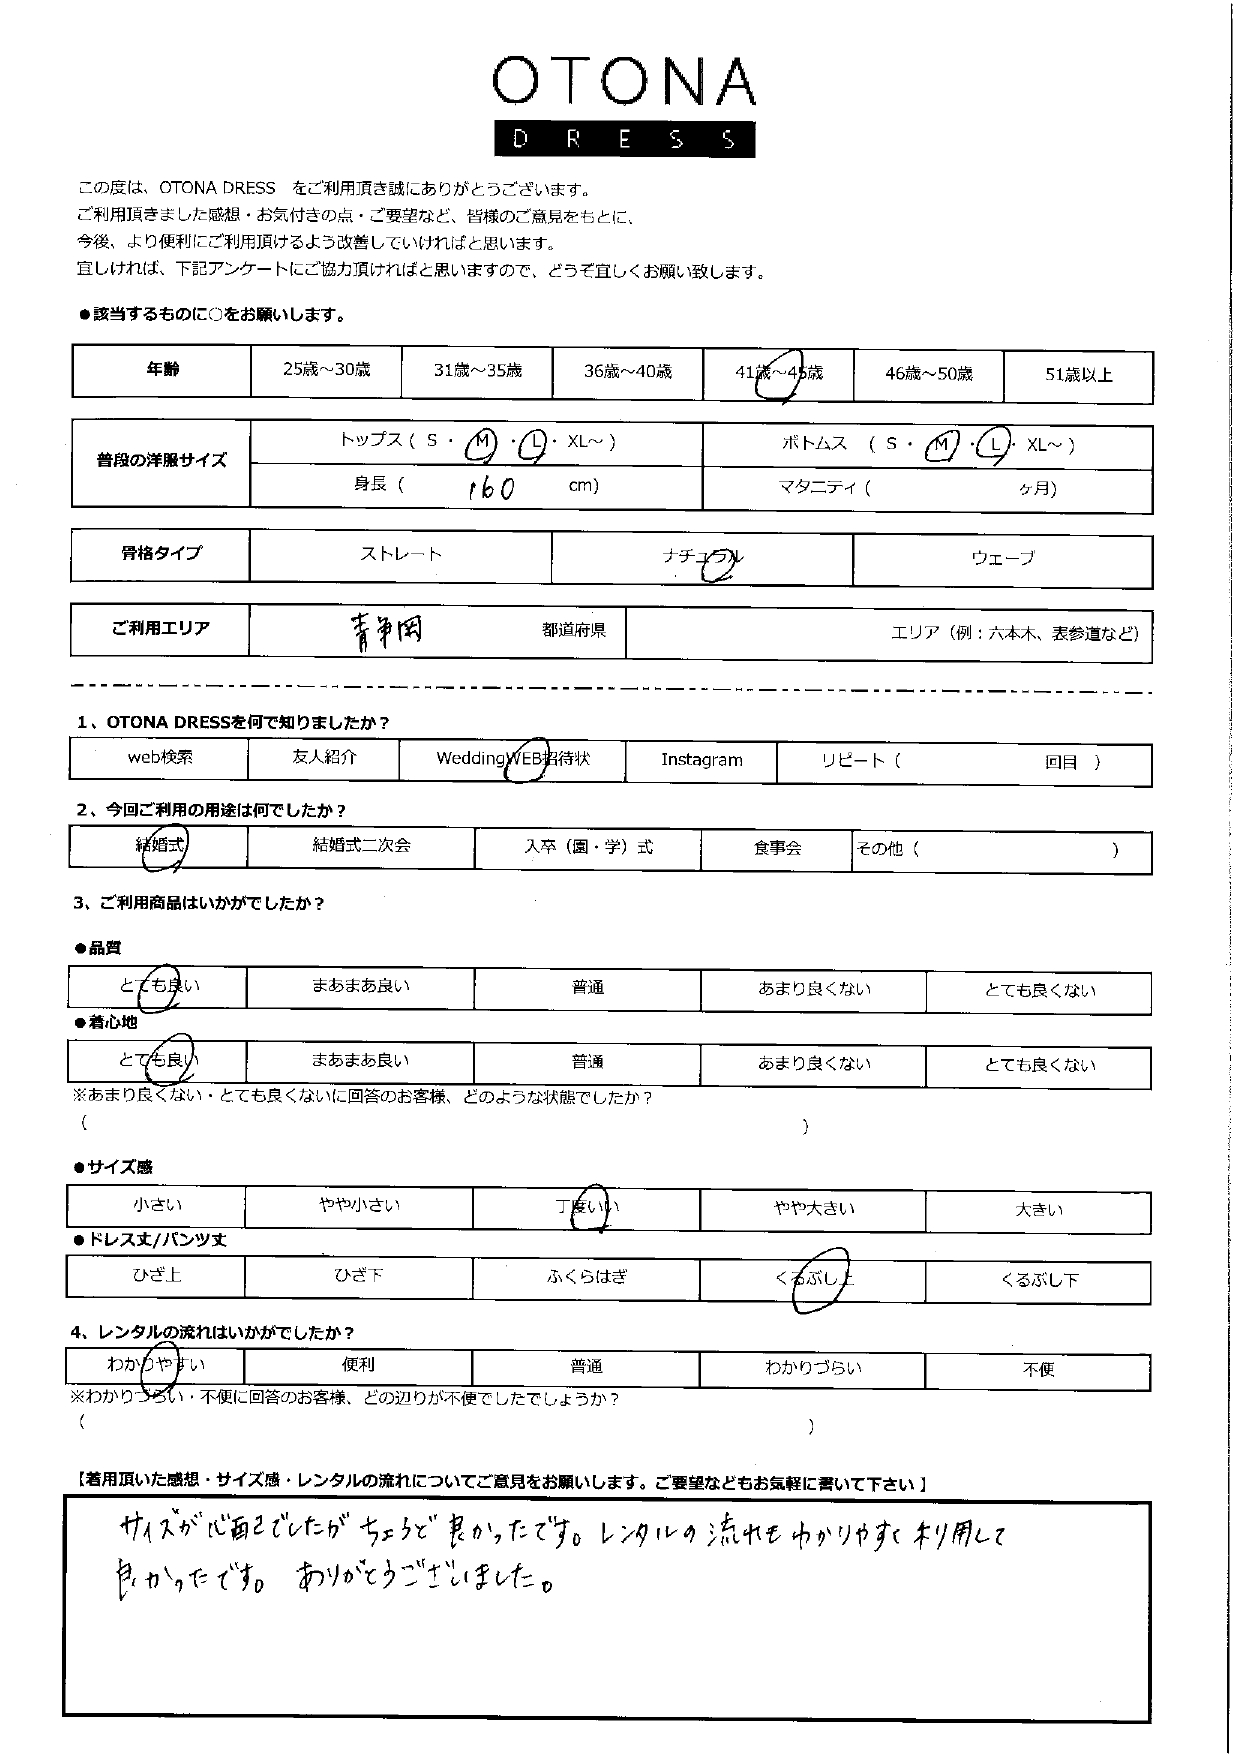 OTONA
DRESS
この度は、OTONA DRESS をご利用頂き誠にありがとうございます。
ご利用頂きました感想・お気付きの点・ご要望など、皆様のご意見をもとに、
今後、より便利にご利用頂けるよう改善していければと思います。
宜しければ、下記アンケートにご協力頂ければと思いますので、どうぞ宜しくお願い致します。
●該当するものに○をお願いします。
年齢 25歳～30歳 31歳～35歳 36歳～40歳 41歳～45歳 46歳～50歳 51歳以上
普段の洋服サイズ トップス ( S ・ M ・ L ・ XL～ ) ボトムス ( S ・ M ・ L ・ XL～ )
身長 ( 160 cm) マタニティ ( ヶ月)
骨格タイプ ストレート ナチュラル ウェーブ
ご利用エリア 静岡 都道府県 エリア（例：六本木、表参道など）
1、OTONA DRESSを何で知りましたか？
web検索 友人紹介 WeddingWEB招待状 Instagram リピート（ 回目 ）
2、今回ご利用の用途は何でしたか？
結婚式 結婚式二次会 入卒（園・学）式 食事会 その他（ ）
3、ご利用商品はいかがでしたか？
●品質
とても良い まあまあ良い 普通 あまり良くない とても良くない
●着心地
とても良い まあまあ良い 普通 あまり良くない とても良くない
※あまり良くない・とても良くないに回答のお客様、どのような状態でしたか？
（ ）
●サイズ感
小さい やや小さい 丁度いい やや大きい 大きい
●ドレス丈/パンツ丈
ひざ上 ひざ下 ふくらはぎ くるぶし上 くるぶし下
4、レンタルの流れはいかがでしたか？
わかりやすい 便利 普通 わかりづらい 不便
※わかりづらい・不便に回答のお客様、どの辺りが不便でしたでしょうか？
（ ）
【着用頂いた感想・サイズ感・レンタルの流れについてご意見をお願いします。ご要望などもお気軽に書いて下さい】
サイズが心配でしたがちょうど良かったです。レンタルの流れもわかりやすく利用して
良かったです。ありがとうございました。